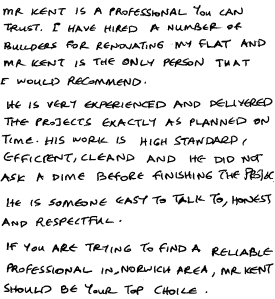 MR KENT IS A PROFESSIONAL YOU CAN
TRUST. I HAVE HIRED A NUMBER OF
BUILDERS FOR RENOVATING MY FLAT AND
MR KENT IS THE ONLY PERSON THAT
I WOULD RECOMMEND.
HE IS VERY EXPERIENCED AND DELIVERED
THE PROJECTS EXACTLY AS PLANNED ON
TIME. HIS WORK IS HIGH STANDARD,
EFFICIENT, CLEAND AND HE DID NOT
ASK A DIME BEFORE FINISHING THE
HE IS SOMEONE EASY TO TALK TO, HONEST
AND RESPECTFUL.
IF YOU ARE TRYING TO FIND A RELIABLE
PROFESSIONAL IN NORWICH AREA, MR KENT
SHOULD BE YOUR TOP CHOICE.